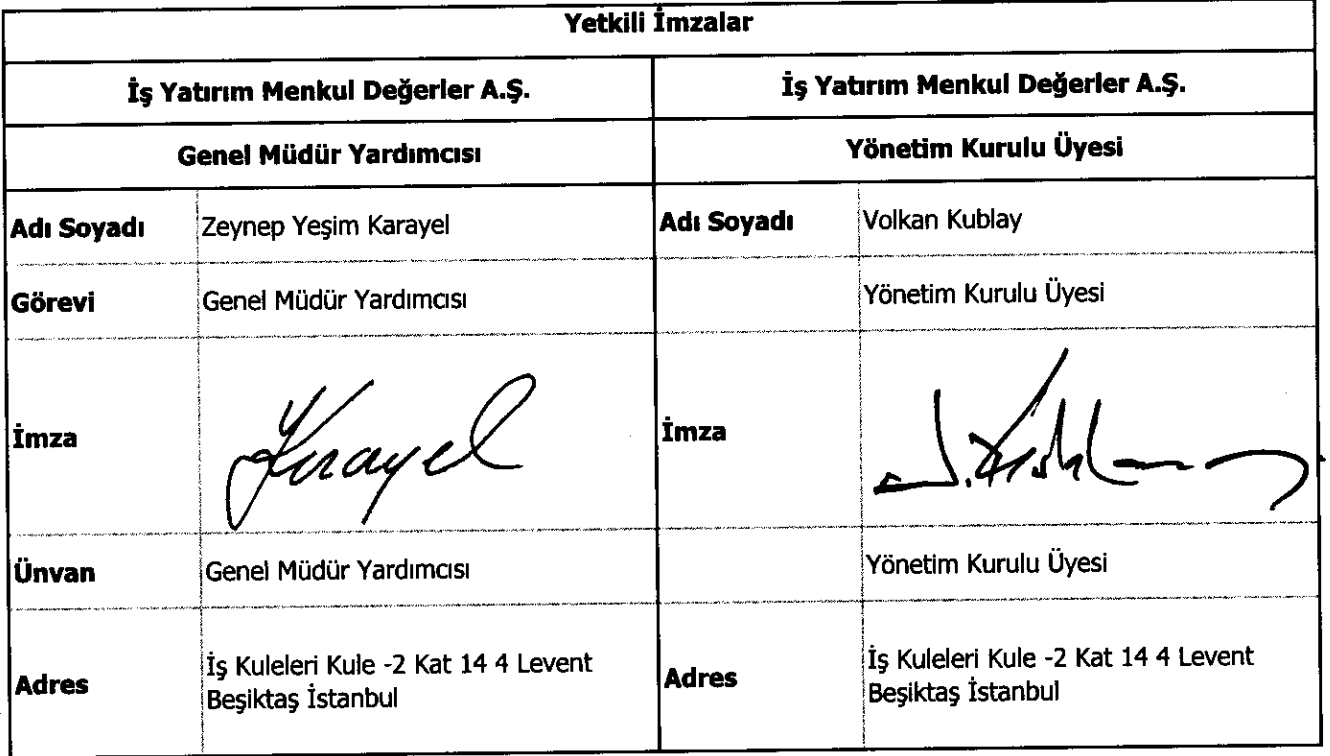 Yetkili İmzalar
İş Yatırım Menkul Değerler A.Ş. İş Yatırım Menkul Değerler A.Ş.
Genel Müdür Yardımcısı Yönetim Kurulu Üyesi
Adı Soyadı Zeynep Yeşim Karayel Adı Soyadı Volkan Kublay
Görevi Genel Müdür Yardımcısı Yönetim Kurulu Üyesi
İmza Karayel İmza
Ünvan Genel Müdür Yardımcısı Yönetim Kurulu Üyesi
Adres İş Kuleleri Kule -2 Kat 14 4 Levent Adres İş Kuleleri Kule -2 Kat 14 4 Levent
Beşiktaş İstanbul Beşiktaş İstanbul